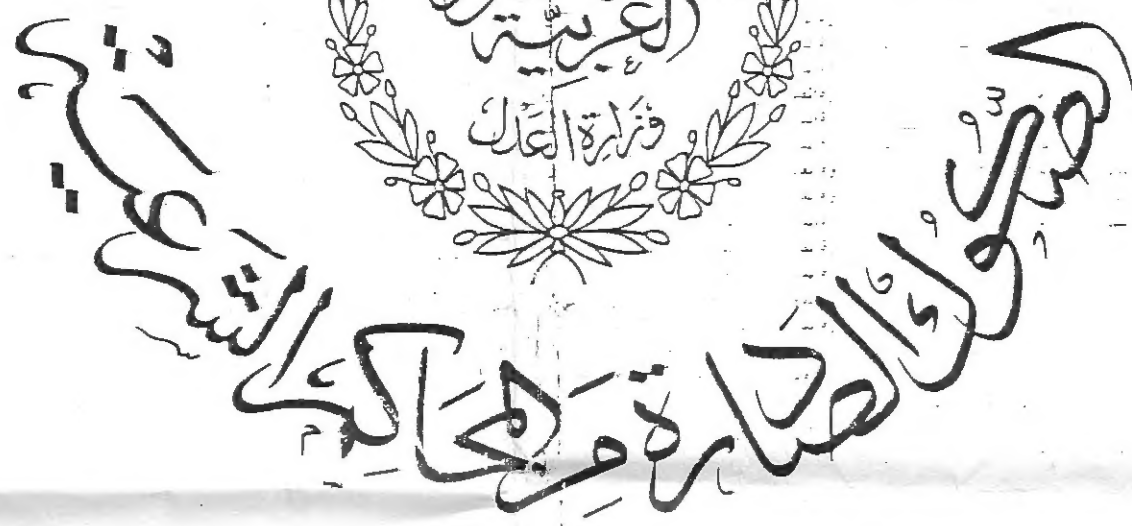 العربية
وزارة العدل
الصكوك الصادرة من المحاكم الشرعية